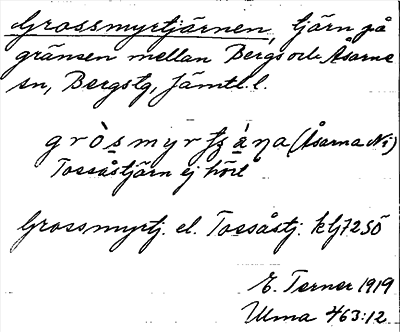 Grossmyrtjärnen, tjärn på
gränsen mellan Bergs och Åsarne
sn, Bergs tg, Jämtl. l.
gròsmyrtȿà̱ɳa (Åsarna Ni)
Tossåstjärn ej hört
Grossmyrtj. el. Tossåstj. klj 72 SÖ
E. Terner 1919
Ulma 463:12